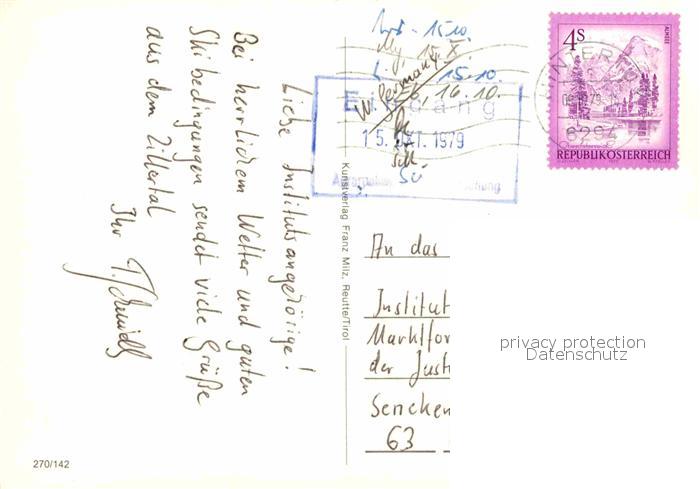 Liebe Institutsangehörige!
Bei herrlichem Wetter und guten
Skibedingungen sendet viele Grüße
aus dem Zillertal
Ihr
270/142
Kunstverlag Franz Milz, Reutte/Tirol
15.10.
15.10.
W. Germany
16.10.
Eingang
15. OKT. 1979
4 S
ALMSEE
REPUBLIK ÖSTERREICH
6294
An das
Institut
Marktfor
der Just
Sencken
63
privacy protection
Datenschutz